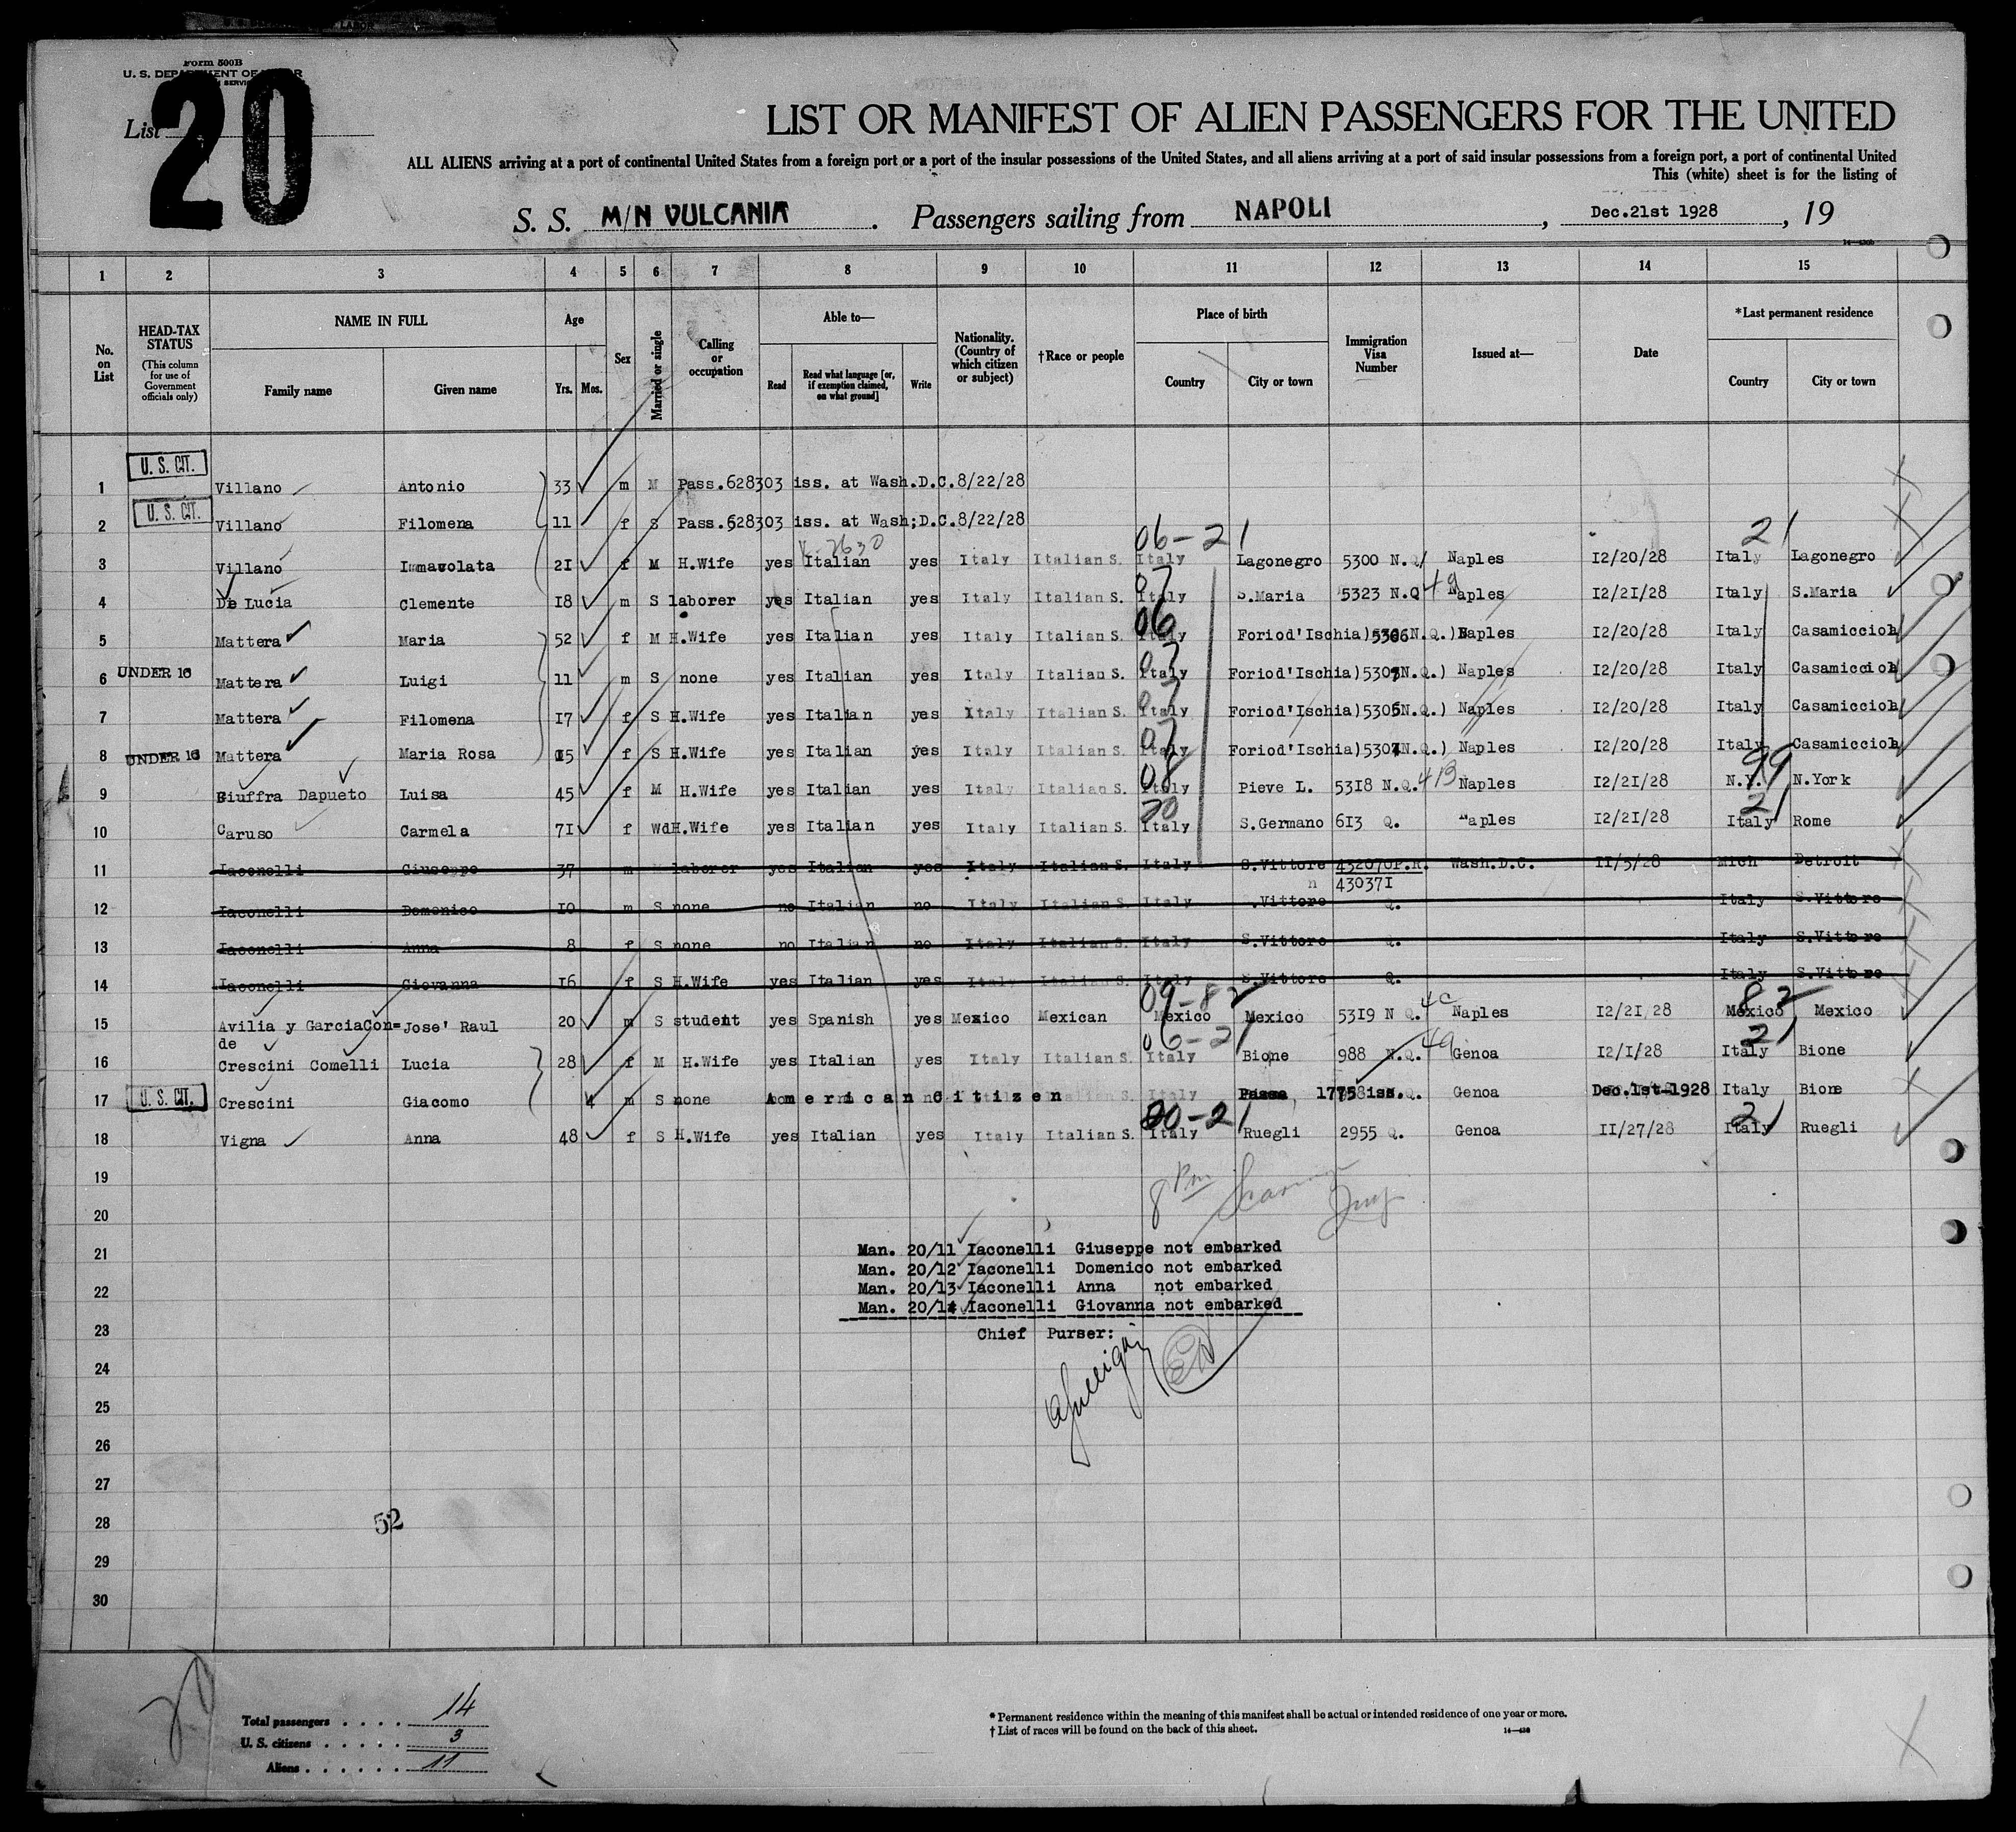 Form 500B
U. S. DEPARTMENT OF LABOR
20
List
LIST OR MANIFEST OF ALIEN PASSENGERS FOR THE UNITED
ALL ALIENS arriving at a port of continental United States from a foreign port or a port of the insular possessions of the United States, and all aliens arriving at a port of said insular possessions from a foreign port, a port of continental United
This (white) sheet is for the listing of
S. S. M/N VULCANIA. Passengers sailing from NAPOLI, Dec.21st 1928, 19
1 2 3 4 5 6 7 8 9 10 11 12 13 14 15
No. on List
HEAD-TAX STATUS (This column for use of Government officials only)
NAME IN FULL
Family name Given name
Age
Yrs. Mos.
Sex
Married or single
Calling or occupation
Able to—
Read Read what language [or, if exemption claimed, on what ground] Write
Nationality. (Country of which citizen or subject)
†Race or people
Place of birth
Country City or town
Immigration Visa Number
Issued at—
Date
*Last permanent residence
Country City or town
1 U. S. CIT. Villano Antonio 33 m M Pass.628303 iss. at Wash.D.C.8/22/28
2 U. S. CIT. Villano Filomena 11 f S Pass.628303 iss. at Wash;D.C.8/22/28
06-21 21
3 Villano Immacolata 21 f M H.Wife yes Italian yes Italy Italian S. Italy Lagonegro 5300 N.Q/ Naples 12/20/28 Italy Lagonegro
4 De Lucia Clemente 18 m S laborer yes Italian yes Italy Italian S. Italy S.Maria 5323 N.Q Naples 12/21/28 Italy S.Maria
5 Mattera Maria 52 f M H.Wife yes Italian yes Italy Italian S. Italy Foriod'Ischia) 5306 N.Q.) Naples 12/20/28 Italy Casamicciola
6 UNDER 16 Mattera Luigi 11 m S none yes Italian yes Italy Italian S. Italy Foriod'Ischia) N.Q.) Naples 12/20/28 Italy Casamicciola
7 Mattera Filomena 17 f S H.Wife yes Italian yes Italy Italian S. Italy Foriod'Ischia)5305N.Q.) Naples 12/20/28 Italy Casamicciola
8 UNDER 16 Mattera Maria Rosa 15 f S H.Wife yes Italian yes Italy Italian S. Italy Foriod'Ischia) N.Q.) Naples 12/20/28 Italy Casamicciola
99
9 Giuffra Dapueto Luisa 45 f M H.Wife yes Italian yes Italy Italian S. Italy Pieve L. 5318 N.Q. Naples 12/21/28 N.Y. N.York
20 21
10 Caruso Carmela 71 f Wd H.Wife yes Italian yes Italy Italian S. Italy S.Germano 613 Q. Naples 12/21/28 Italy Rome
11 Iaconelli Giuseppe 37 m laborer yes Italian yes Italy Italian S. Italy S.Vittore 432070P.R. Wash.D.C. 11/5/28 Mich Detroit
430371
12 Iaconelli Domenico 10 m S none no Italian no Italy Italian S. Italy S.Vittore Q. Italy S.Vittore
13 Iaconelli Anna 8 f S none no Italian no Italy Italian S. Italy S.Vittore Q. Italy S.Vittore
14 Iaconelli Giovanna 16 f S H.Wife yes Italian yes Italy Italian S. Italy S.Vittore Q. Italy S.Vittore
09-82 82
15 Avilia y GarciaCon= Jose' Raul 20 m S student yes Spanish yes Mexico Mexican Mexico Mexico 5319 N Q. Naples 12/21 28 Mexico Mexico
de
06-21 21
16 Crescini Comelli Lucia 28 f M H.Wife yes Italian yes Italy Italian S. Italy Bione 988 N.Q. Genoa 12/1/28 Italy Bione
17 U. S. CIT. Crescini Giacomo 4 m S none American Citizen Italy iss. Genoa Dec.1st-1928 Italy Bione
20-21 21
18 Vigna Anna 48 f S H.Wife yes Italian yes Italy Italian S. Italy Ruegli 2955 Q. Genoa 11/27/28 Italy Ruegli
19
20
21
22
23
24
25
26
27
28
29
30
Man. 20/11 Iaconelli Giuseppe not embarked
Man. 20/12 Iaconelli Domenico not embarked
Man. 20/13 Iaconelli Anna not embarked
Man. 20/14 Iaconelli Giovanna not embarked
Chief Purser:
52
Total passengers . . . . 14
U. S. citizens . . . . . 3
Aliens . . . . . . 11
* Permanent residence within the meaning of this manifest shall be actual or intended residence of one year or more.
† List of races will be found on the back of this sheet.